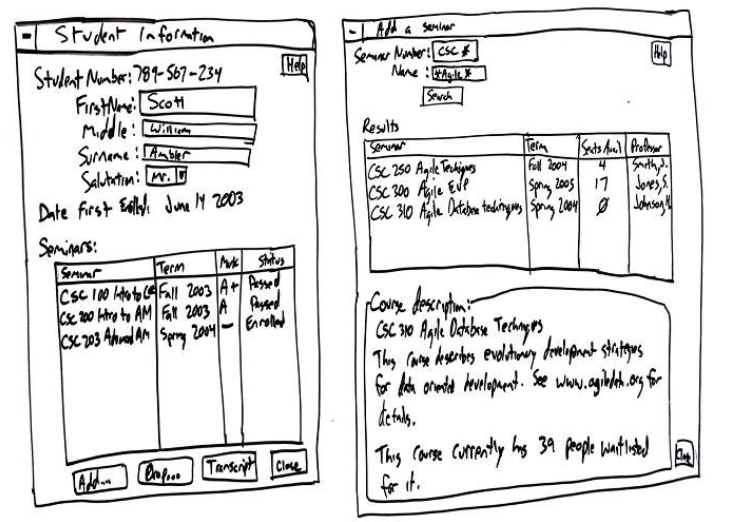 Student Information
Help
Student Number: 789-567-234
First Name: Scott
Middle: William
Surname: Ambler
Salutation: Mr.
Date First Enlld: June 14 2003
Seminars:
Seminar Term Mark Status
CSC 100 Intro to CSC Fall 2003 A+ Passed
CSC 200 Intro to AM Fall 2003 A Passed
CSC 203 Advnced AM Spring 2004 — Enrolled
Add... Drop... Transcript Close
Add a seminar
Seminar Number: CSC *
Help
Name: *Agile*
Search
Results
Seminar Term Seats Avail Professor
CSC 250 Agile Techniques Fall 2004 4 Smith, J.
CSC 300 Agile EUP Spring 2005 17 Jones, S.
CSC 310 Agile Database techniques Spring 2004 Ø Johnson,
Course description:
CSC 310 Agile Database Techniques
This course describes evolutionary development strategies
for data oriented development. See www.agiledata.org for
details.
This course currently has 39 people waitlisted
for it.
Close